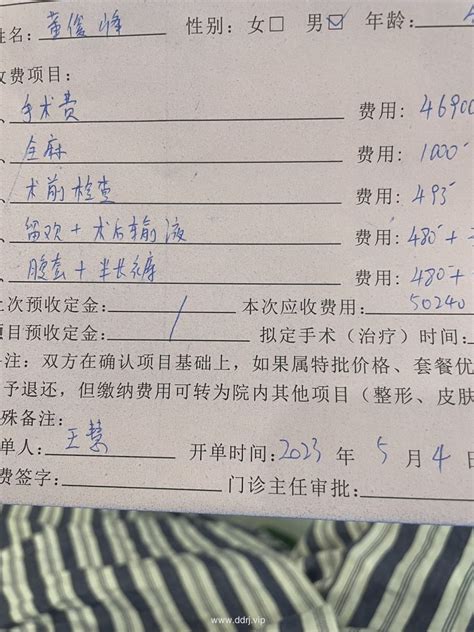 姓名: 董俊峰 性别: 女□ 男☑ 年龄:
收费项目:
手术费 费用: 46900
全麻 费用: 1000
术前检查 费用: 495
留观+术后输液 费用: 480+
腹套+半长裤 费用: 480+
上次预收定金: / 本次应收费用: 50240
项目预收定金: / 拟定手术(治疗)时间:
备注: 双方在确认项目基础上, 如果属特批价格、套餐优
予退还, 但缴纳费用可转为院内其他项目(整形、皮肤
殊备注:
单人: 王慧 开单时间: 2023 年 5 月 4 日
费签字: 门诊主任审批:
www.ddrj.vip